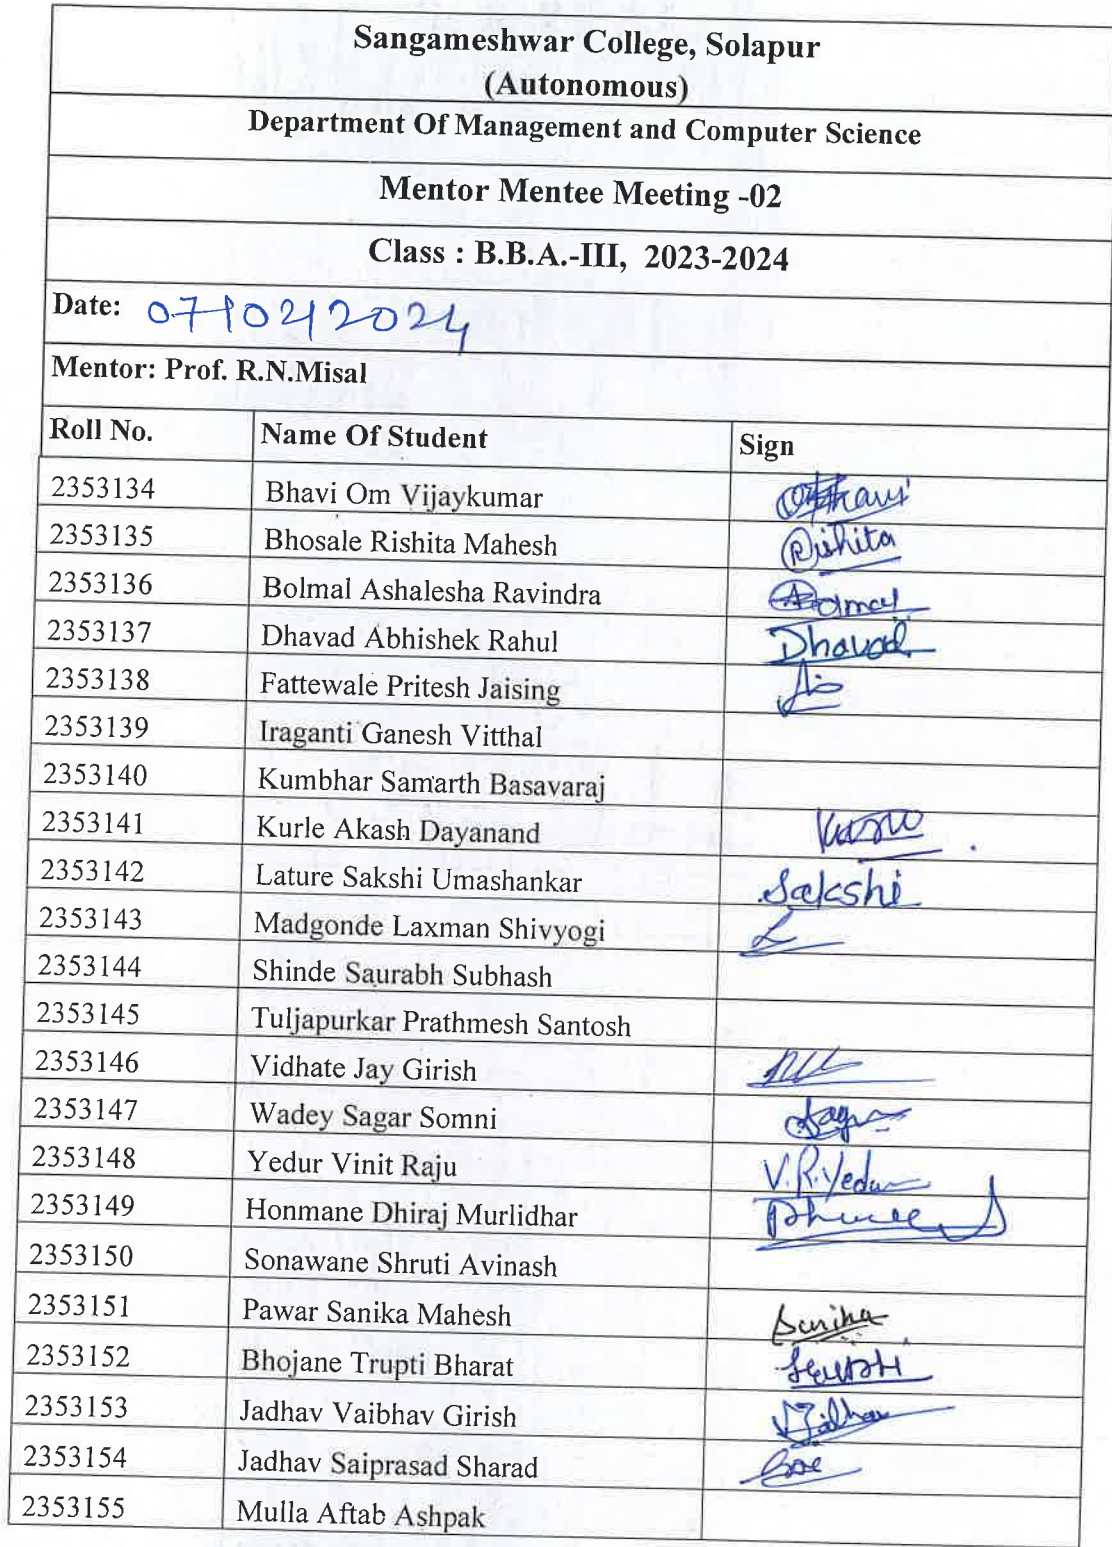 Sangameshwar College, Solapur
(Autonomous)
Department Of Management and Computer Science
Mentor Mentee Meeting -02
Class : B.B.A.-III, 2023-2024
Date: 07/02/2024
Mentor: Prof. R.N.Misal
Roll No. Name Of Student Sign
2353134 Bhavi Om Vijaykumar
2353135 Bhosale Rishita Mahesh Rishita
2353136 Bolmal Ashalesha Ravindra
2353137 Dhavad Abhishek Rahul Dhavad
2353138 Fattewale Pritesh Jaising
2353139 Iraganti Ganesh Vitthal
2353140 Kumbhar Samarth Basavaraj
2353141 Kurle Akash Dayanand
2353142 Lature Sakshi Umashankar Sakshi
2353143 Madgonde Laxman Shivyogi
2353144 Shinde Saurabh Subhash
2353145 Tuljapurkar Prathmesh Santosh
2353146 Vidhate Jay Girish
2353147 Wadey Sagar Somni
2353148 Yedur Vinit Raju V.R.Yedur
2353149 Honmane Dhiraj Murlidhar
2353150 Sonawane Shruti Avinash
2353151 Pawar Sanika Mahesh Sanika
2353152 Bhojane Trupti Bharat
2353153 Jadhav Vaibhav Girish
2353154 Jadhav Saiprasad Sharad
2353155 Mulla Aftab Ashpak